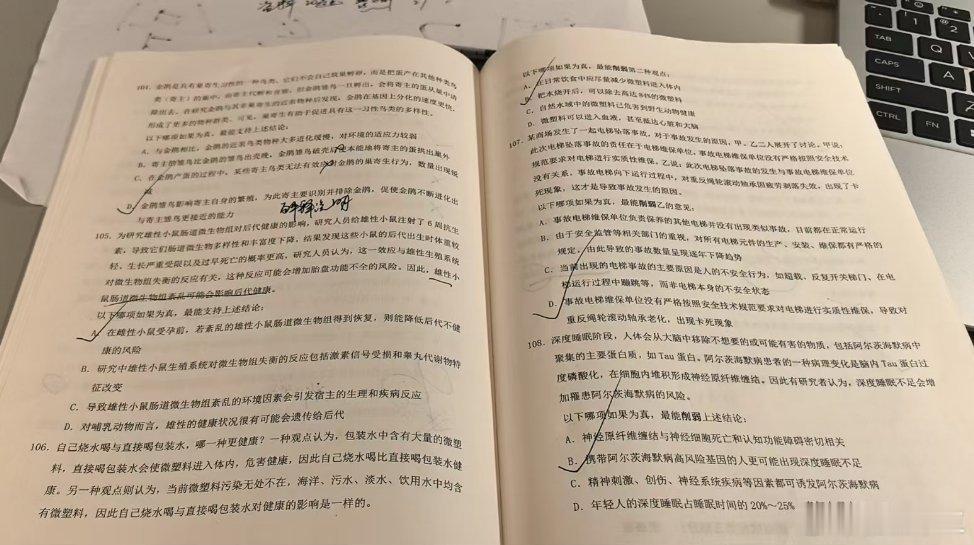 104. 金鹃是具有巢寄生习性的一种鸟类，它们不会自己筑巢孵卵，而是把蛋产在其他种类鸟
类（寄主）的巢中，由寄主代孵和育雏，但金鹃雏鸟一旦孵出，会将寄主的蛋从巢中清
除出去。在研究金鹃与其非巢寄生的近亲物种后发现，金鹃在基因上分化的速度更快，
形成了更多的物种群类。可见，巢寄生有助于促进具有这一习性鸟类的多样性。
以下哪项如果为真，最能支持上述结论：
A. 与金鹃相比，金鹃的近亲鸟类物种大多进化缓慢，对环境的适应力较弱
B. 寄主的雏鸟比金鹃的雏鸟出壳晚，金鹃雏鸟破壳后会本能地将寄主的蛋拱出巢外
C. 在金鹃产蛋的过程中，某些寄主鸟类无法有效应对金鹃的巢寄生行为，数量出现锐
减
D. 金鹃雏鸟影响寄主自身的繁殖，为此寄主要识别并排除金鹃，促使金鹃不断进化出
与寄主雏鸟更接近的能力
解释说明
105. 为研究雄性小鼠肠道微生物组对后代健康的影响，研究人员给雄性小鼠注射了6周抗生
素，导致它们肠道微生物多样性和丰富度下降。结果发现这些小鼠的后代出生时体重较
轻、生长严重受限以及过早死亡的概率更高，研究人员认为，这一效应与雄性生殖系统
对微生物组失衡的反应有关，这种反应可能会增加胎盘功能不全的风险。因此，雄性小
鼠肠道微生物组紊乱可能会影响后代健康。
以下哪项如果为真，最能支持上述结论：
A. 在雌性小鼠受孕前，若紊乱的雄性小鼠肠道微生物组得到恢复，则能降低后代不健
康的风险
B. 研究中雄性小鼠生殖系统对微生物组失衡的反应包括激素信号受损和睾丸代谢物特
征改变
C. 导致雄性小鼠肠道微生物组紊乱的环境因素会引发宿主的生理和疾病反应
D. 对哺乳动物而言，雄性的健康状况很有可能会遗传给后代
106. 自己烧水喝与直接喝包装水，哪一种更健康？一种观点认为，包装水中含有大量的微塑
料，直接喝包装水会使微塑料进入体内，危害健康，因此自己烧水喝比直接喝包装水健
康。另一种观点则认为，当前微塑料污染无处不在，海洋、污水、淡水、饮用水中均含
有微塑料，因此自己烧水喝与直接喝包装水对健康的影响是一样的。
以下哪项如果为真，最能削弱第二种观点：
A. 在日常饮食中应尽量减少微塑料进入体内
B. 把水烧开后，可以除去高达84%的微塑料
C. 自然水域中的微塑料已危害到野生动物健康
D. 微塑料可以进入血液，甚至抵达心脏和大脑
107. 某商场发生了一起电梯坠落事故，对于事故发生的原因，甲、乙二人展开了讨论。甲说：
此次电梯坠落事故的责任在于电梯维保单位，事故电梯维保单位没有严格按照安全技术
规范要求对电梯进行实质性维保。乙说：此次电梯坠落事故的发生与事故电梯维保单位
没有关系，事故电梯向下运行过程中，对重反绳轮滚动轴承因疲劳剥落失效，出现了卡
死现象，这才是导致事故发生的原因。
以下哪项如果为真，最能削弱乙的意见：
A. 事故电梯维保单位负责保养的其他电梯并没有出现类似事故，目前都在正常运行
B. 由于安全监管等相关部门的重视，对所有电梯元件的生产、安装、维保都有严格的
规定，由此导致的事故数量呈现逐年下降趋势
C. 当前出现的电梯事故的主要原因是人的不安全行为，如超载、反复开关梯门、在电
梯运行过程中蹦跳等，而非电梯本身的不安全状态
D. 事故电梯维保单位没有严格按照安全技术规范要求对电梯进行实质性维保，导致对
重反绳轮滚动轴承老化，出现卡死现象
108. 深度睡眠阶段，人体会从大脑中移除不想要的或可能有害的物质，包括阿尔茨海默病中
聚集的主要蛋白质，如Tau蛋白。阿尔茨海默病患者的一种病理变化是脑内Tau蛋白过
度磷酸化，在细胞内堆积形成神经原纤维缠结。因此有研究者认为，深度睡眠不足会增
加罹患阿尔茨海默病的风险。
以下哪项如果为真，最能削弱上述结论：
A. 神经原纤维缠结与神经细胞死亡和认知功能障碍密切相关
B. 携带阿尔茨海默病高风险基因的人更可能出现深度睡眠不足
C. 精神刺激、创伤、神经系统疾病等因素都可诱发阿尔茨海默病
D. 年轻人的深度睡眠占睡眠时间的20%～25%
TAB
CAPS
SHIFT
CTRL
FN
Q
A
Z